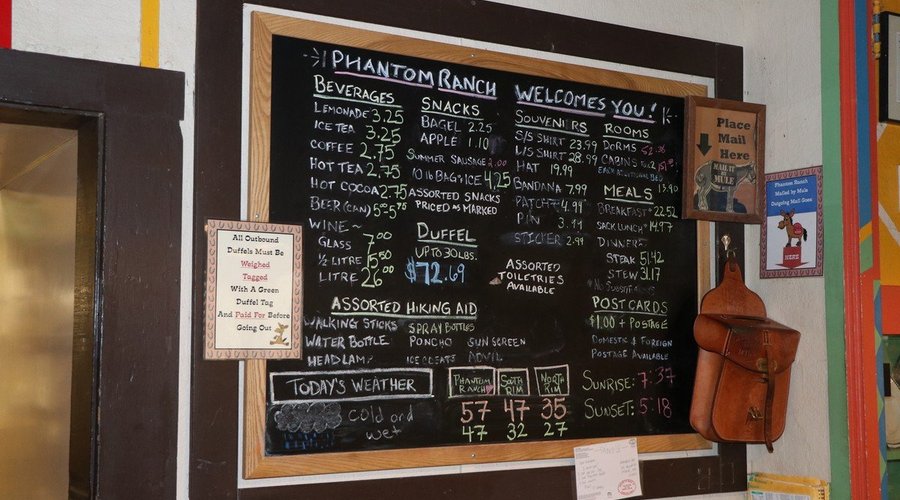 PHANTOM RANCH WELCOMES YOU!
BEVERAGES
LEMONADE 3.25
ICE TEA 3.25
COFFEE 2.75
HOT TEA 2.75
HOT COCOA 2.75
BEER (CAN)
WINE ~
GLASS 7.00
½ LITRE 15.50
LITRE 26.00
SNACKS
BAGEL 2.25
APPLE 1.10
SUMMER SAUSAGE 2.00
10 lb BAG ICE 4.25
ASSORTED SNACKS
PRICED AS MARKED
DUFFEL
UP TO 30 LBS.
$72.69
SOUVENIRS
S/S SHIRT 23.99
L/S SHIRT 28.99
HAT 19.99
BANDANA 7.99
PATCH 4.99
PIN
STICKER 2.99
ASSORTED
TOILETRIES
AVAILABLE
ROOMS
DORMS
CABINS
EACH ADDITIONAL BED
MEALS
BREAKFAST 22.52
SACK LUNCH 14.97
DINNER
STEAK 51.42
STEW
POST CARDS
$1.00 + POSTAGE
DOMESTIC & FOREIGN
POSTAGE AVAILABLE
ASSORTED HIKING AID
WALKING STICKS SPRAY BOTTLES
WATER BOTTLE PONCHO SUN SCREEN
HEADLAMP ICE CLEATS ADVIL
TODAY'S WEATHER
Cold and
wet
PHANTOM RANCH
57
47
SOUTH RIM
47
32
NORTH RIM
35
27
SUNRISE: 7:37
SUNSET: 5:18
All Outbound
Duffels Must Be
Weighed
Tagged
With A Green
Duffel Tag
And Paid For Before
Going Out
Place
Mail
Here
Phantom Ranch
Mailed by Mule
Outgoing Mail Goes
HERE